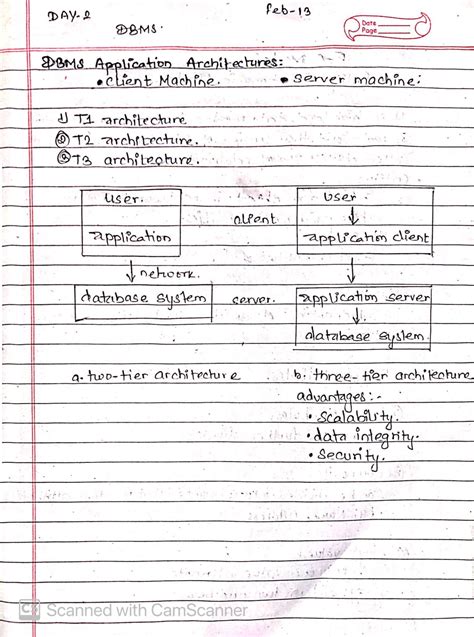 DAY-2
Feb-13
DBMS.
Date
Page
DBMS Application Architectures:
• client Machine. • server machine:
1) T1 architecture
2) T2 architecture.
3) T3 architecture.
user. user.
client
application application client
network.
database system server. application server
database system.
a. two-tier architecture b. three-tier architecture
advantages:-
• Scalability.
• data integrity.
• security.
CS Scanned with CamScanner